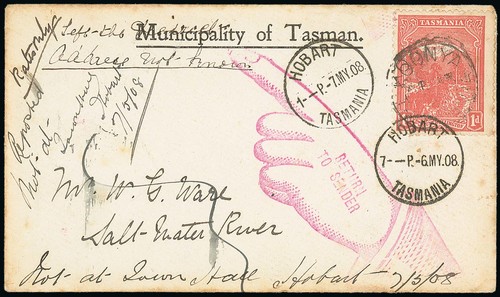 Left the District
Municipality of Tasman.
Address Not Known
Reported
Not at
Hobart
7/5/08
HOBART
1-P-7.MY.08
TASMANIA
TASMANIA
1d
HOBART
7-P-6.MY.08
TASMANIA
RETURN
TO SENDER
Mr W. G. Ware
Salt-Water River
Not at Town Hall Hobart 7/5/08